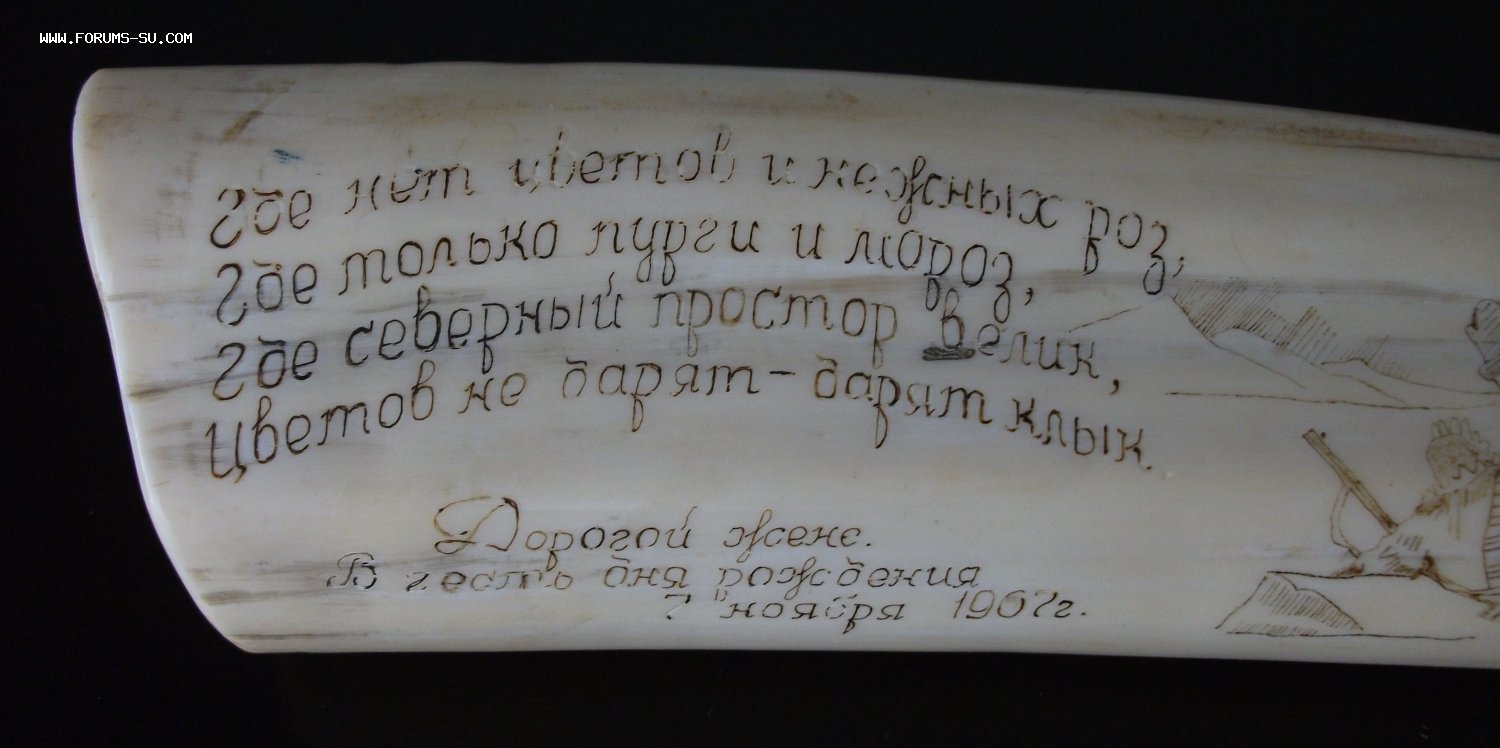 WWW.FORUMS-SU.COM
Где нет цветов и нежных роз,
Где только пурги и мороз,
Где северный простор велик,
Цветов не дарят - дарят клык.
Дорогой жене.
В честь дня рождения
7 ноября 1967г.